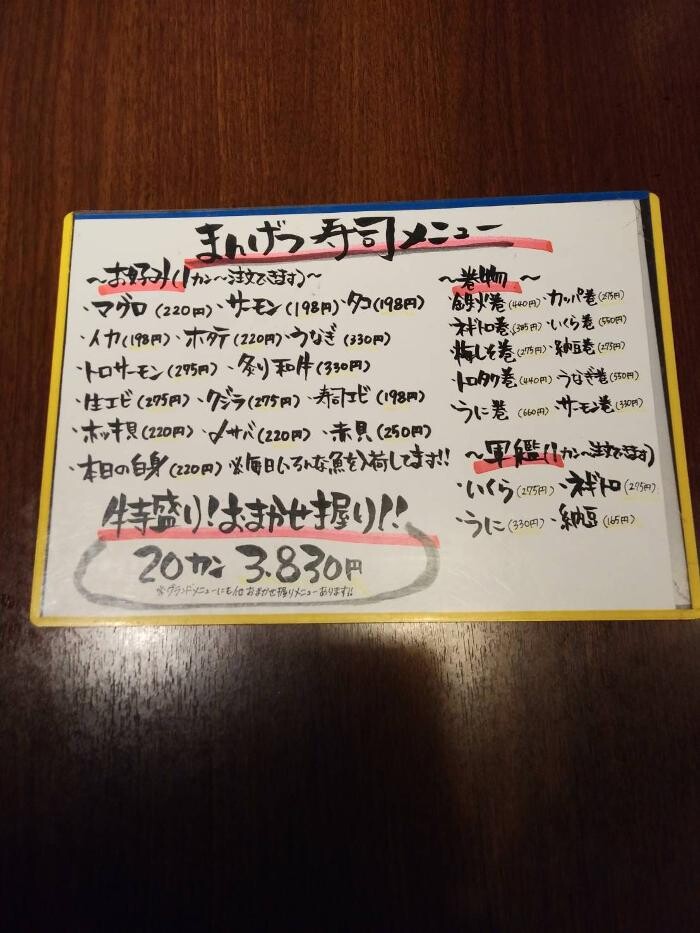 まんげつ寿司メニュー
〜お好み(1カン〜注文できます)〜
・マグロ(220円)・サーモン(198円)・タコ(198円)
・イカ(198円)・ホタテ(220円)・うなぎ(330円)
・トロサーモン(275円)・炙り和牛(330円)
・生エビ(275円)・クジラ(275円)・寿司エビ(198円)
・ホッキ貝(220円)・〆サバ(220円)・赤貝(250円)
・本日の白身(220円)※毎日いろんな魚を入荷してます!!
特盛り!おまかせ握り!!
20カン 3.830円
※グランドメニューにも他おまかせ握りメニューあります!!
〜巻物〜
・鉄火巻(440円)・カッパ巻(275円)
・ネギトロ巻(385円)・いくら巻(550円)
・梅しそ巻(275円)・納豆巻(275円)
・トロタク巻(440円)・うなぎ巻(550円)
・うに巻(660円)・サーモン巻(330円)
〜軍艦(1カン〜注文できます)
・いくら(275円)・ネギトロ(275円)
・うに(330円)・納豆(165円)